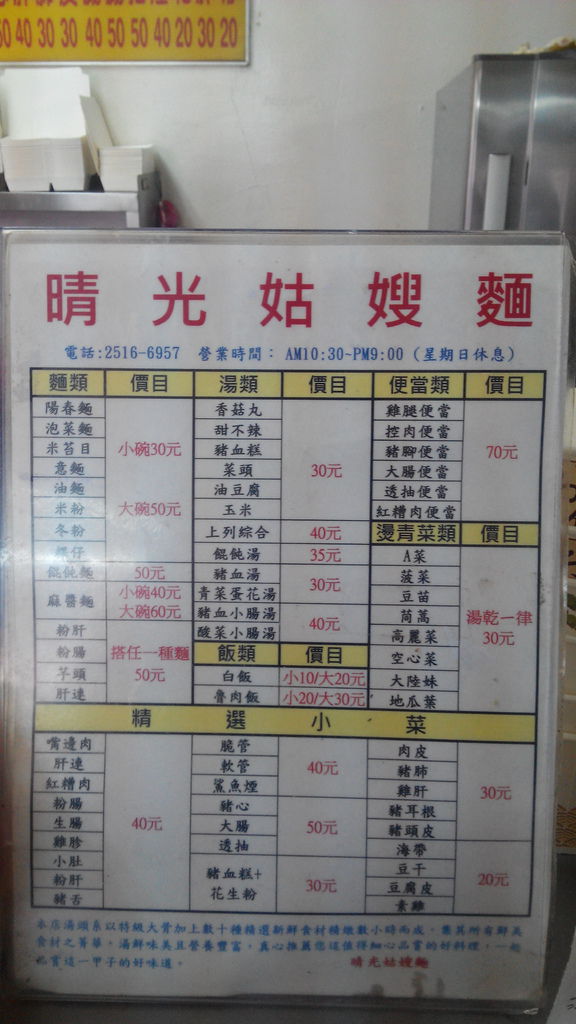 50 40 30 30 40 50 50 40 20 30 20
晴光姑嫂麵
電話:2516-6957 營業時間: AM10:30~PM9:00 (星期日休息)
麵類 價目 湯類 價目 便當類 價目
陽春麵
泡菜麵
米苔目
意麵
油麵
米粉
冬粉
粿仔
小碗30元
大碗50元
餛飩麵 50元
麻醬麵 小碗40元
大碗60元
粉肝
粉腸
芋頭
肝連
搭任一種麵
50元
香菇丸
甜不辣
豬血糕
菜頭
油豆腐
玉米
30元
上列綜合 40元
餛飩湯 35元
豬血湯
青菜蛋花湯
30元
豬血小腸湯
酸菜小腸湯
40元
飯類 價目
白飯 小10/大20元
魯肉飯 小20/大30元
雞腿便當
控肉便當
豬腳便當
大腸便當
透抽便當
紅糟肉便當
70元
燙青菜類 價目
A菜
菠菜
豆苗
茼蒿
高麗菜
空心菜
大陸妹
地瓜葉
湯乾一律
30元
精選小菜
嘴邊肉
肝連
紅糟肉
粉腸
生腸
雞胗
小肚
粉肝
豬舌
40元
脆管
軟管
鯊魚煙
40元
豬心
大腸
透抽
50元
豬血糕+
花生粉
30元
肉皮
豬肺
雞肝
豬耳根
豬頭皮
30元
海帶
豆干
豆腐皮
素雞
20元
本店湯頭系以特級大骨加上數十種精選新鮮食材精燉數小時而成,集其所有鮮美
食材之菁華,湯鮮味美且營養豐富,真心推薦您這值得細心品嘗的好料理,一起
品嘗這一甲子的好味道。 晴光姑嫂麵